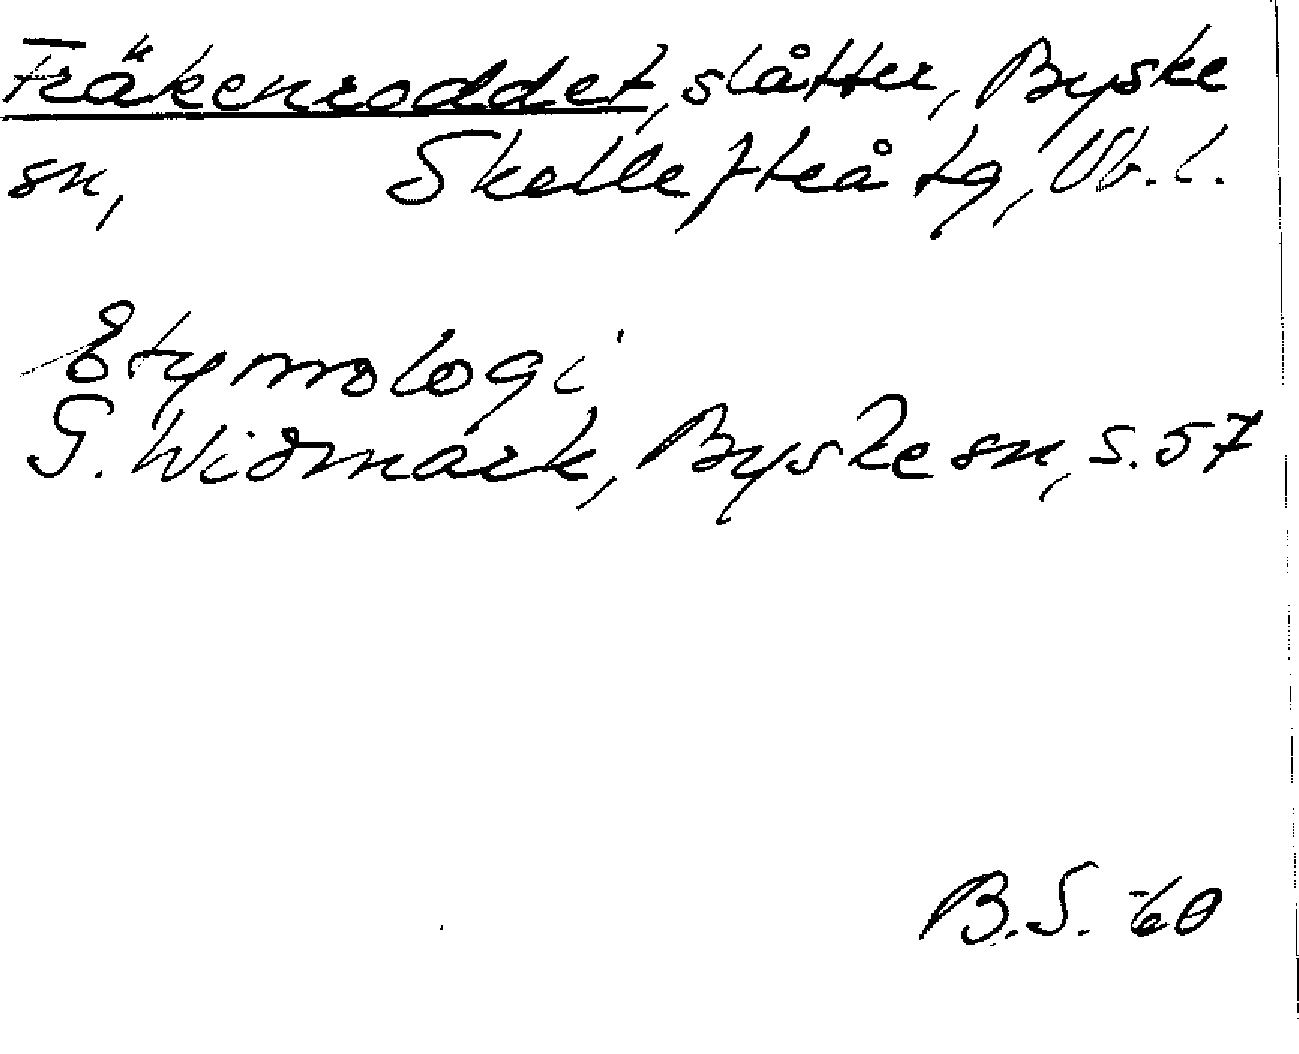 Fräkenroddet, slåtter, Byske
sn, Skellefteå tg, Vb. l.
Etymologi
G. Widmark, Byske sn, s. 57
B.S. -60